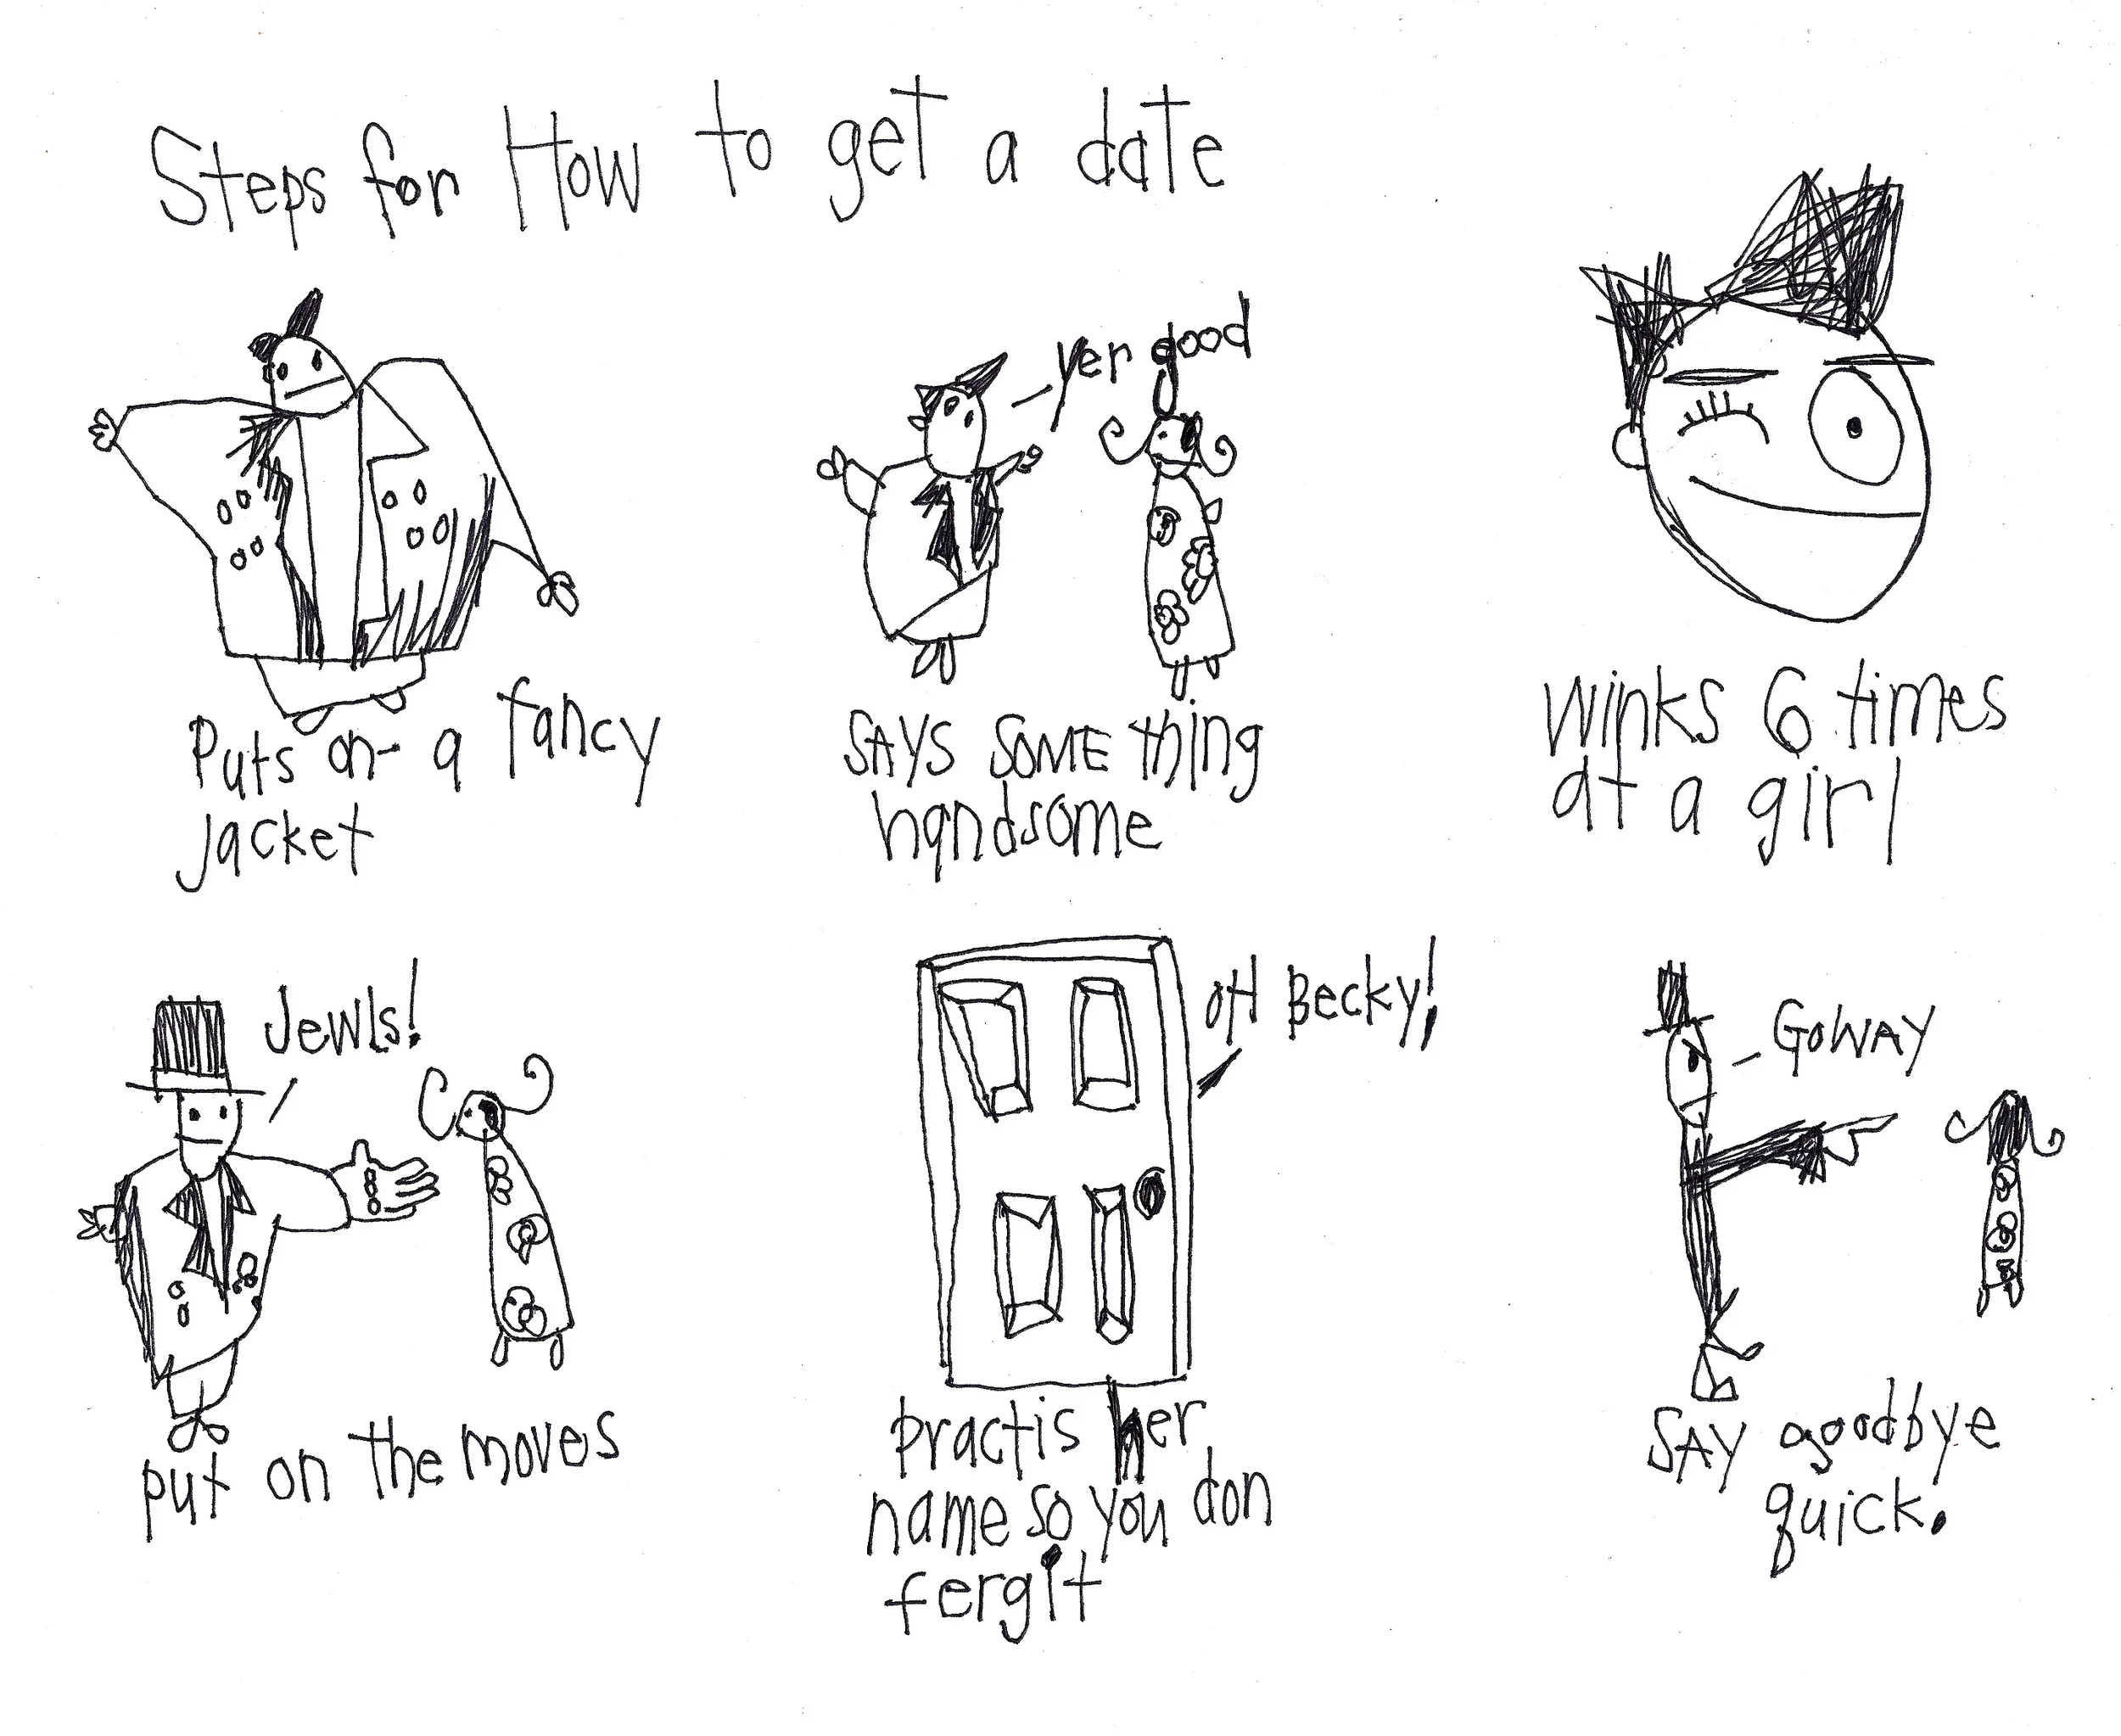 Steps for How to get a date
yer good
Puts on a fancy
jacket
SAYS SOME thing
handsome
Winks 6 times
at a girl
Jewls!
OH Becky!
GOWAY
put on the moves
practis her
name so you don
fergit
SAY goodbye
quick.